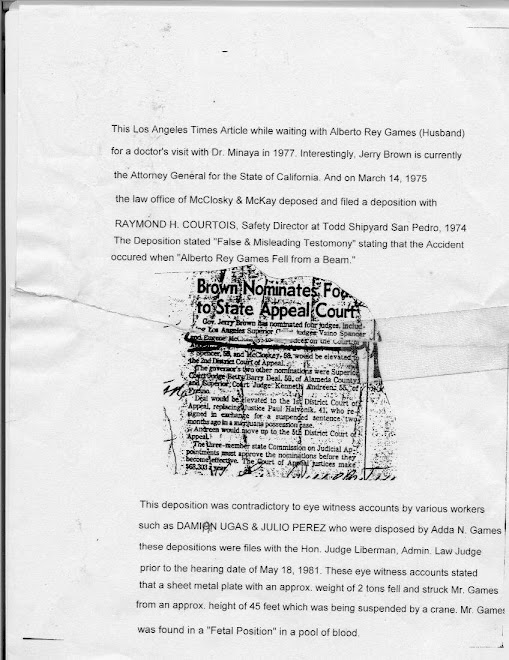 This Los Angeles Times Article while waiting with Alberto Rey Games (Husband)
for a doctor's visit with Dr. Minaya in 1977. Interestingly, Jerry Brown is currently
the Attorney General for the State of California. And on March 14, 1975
the law office of McClosky & McKay deposed and filed a deposition with
RAYMOND H. COURTOIS, Safety Director at Todd Shipyard San Pedro, 1974
The Deposition stated "False & Misleading Testomony" stating that the Accident
occured when "Alberto Rey Games Fell from a Beam."
Brown Nominates Fou
to State Appeal Court
Gov. Jerry Brown has nominated four judges, includ-
Los Angeles Superior Judges Vaino Spencer
and Eugene on the Court of
Spencer, 58, and McClosky, 58, would be elevated to
the 2nd District Court of Appeal.
The governor's two other nominations were Superior
Court Judge Betty Barry Deal, 59, of Alameda County
and Superior Court Judge Kenneth Andreen, 55, of
Fresno.
Deal would be elevated to the 1st District Court of
Appeal, replacing Justice Paul Halvonik, 41, who re-
signed in exchange for a suspended sentence two
months ago in a marijuana possession case.
Andreen would move up to the 5th District Court of
Appeal.
The three-member state Commission on Judicial Ap-
pointments must approve the nominations before they
become effective. The Court of Appeal justices make
$68,303 a year.
This deposition was contradictory to eye witness accounts by various workers
such as DAMIAN UGAS & JULIO PEREZ who were disposed by Adda N. Games
these depositions were files with the Hon. Judge Liberman, Admin. Law Judge
prior to the hearing date of May 18, 1981. These eye witness accounts stated
that a sheet metal plate with an approx. weight of 2 tons fell and struck Mr. Games
from an approx. height of 45 feet which was being suspended by a crane. Mr. Games
was found in a "Fetal Position" in a pool of blood.